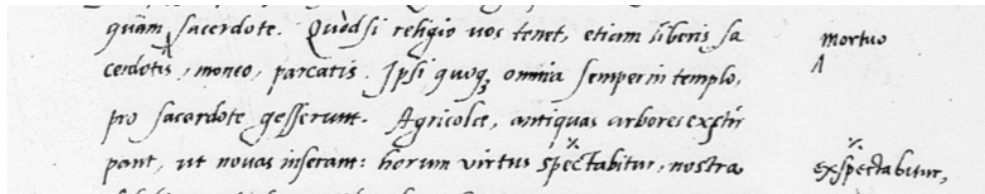 quàm sacerdote. Quòd si religio uos tenet, etiam liberis sa
cerdotis, moneo, parcatis. Ipsi quoq; omnia semper in templo,
pro sacerdote gesserunt. Agricolæ, antiquas arbores extir
pant, ut nouas inserant: horum virtus spectabitur, nostra
mortuo
exspectabitur,